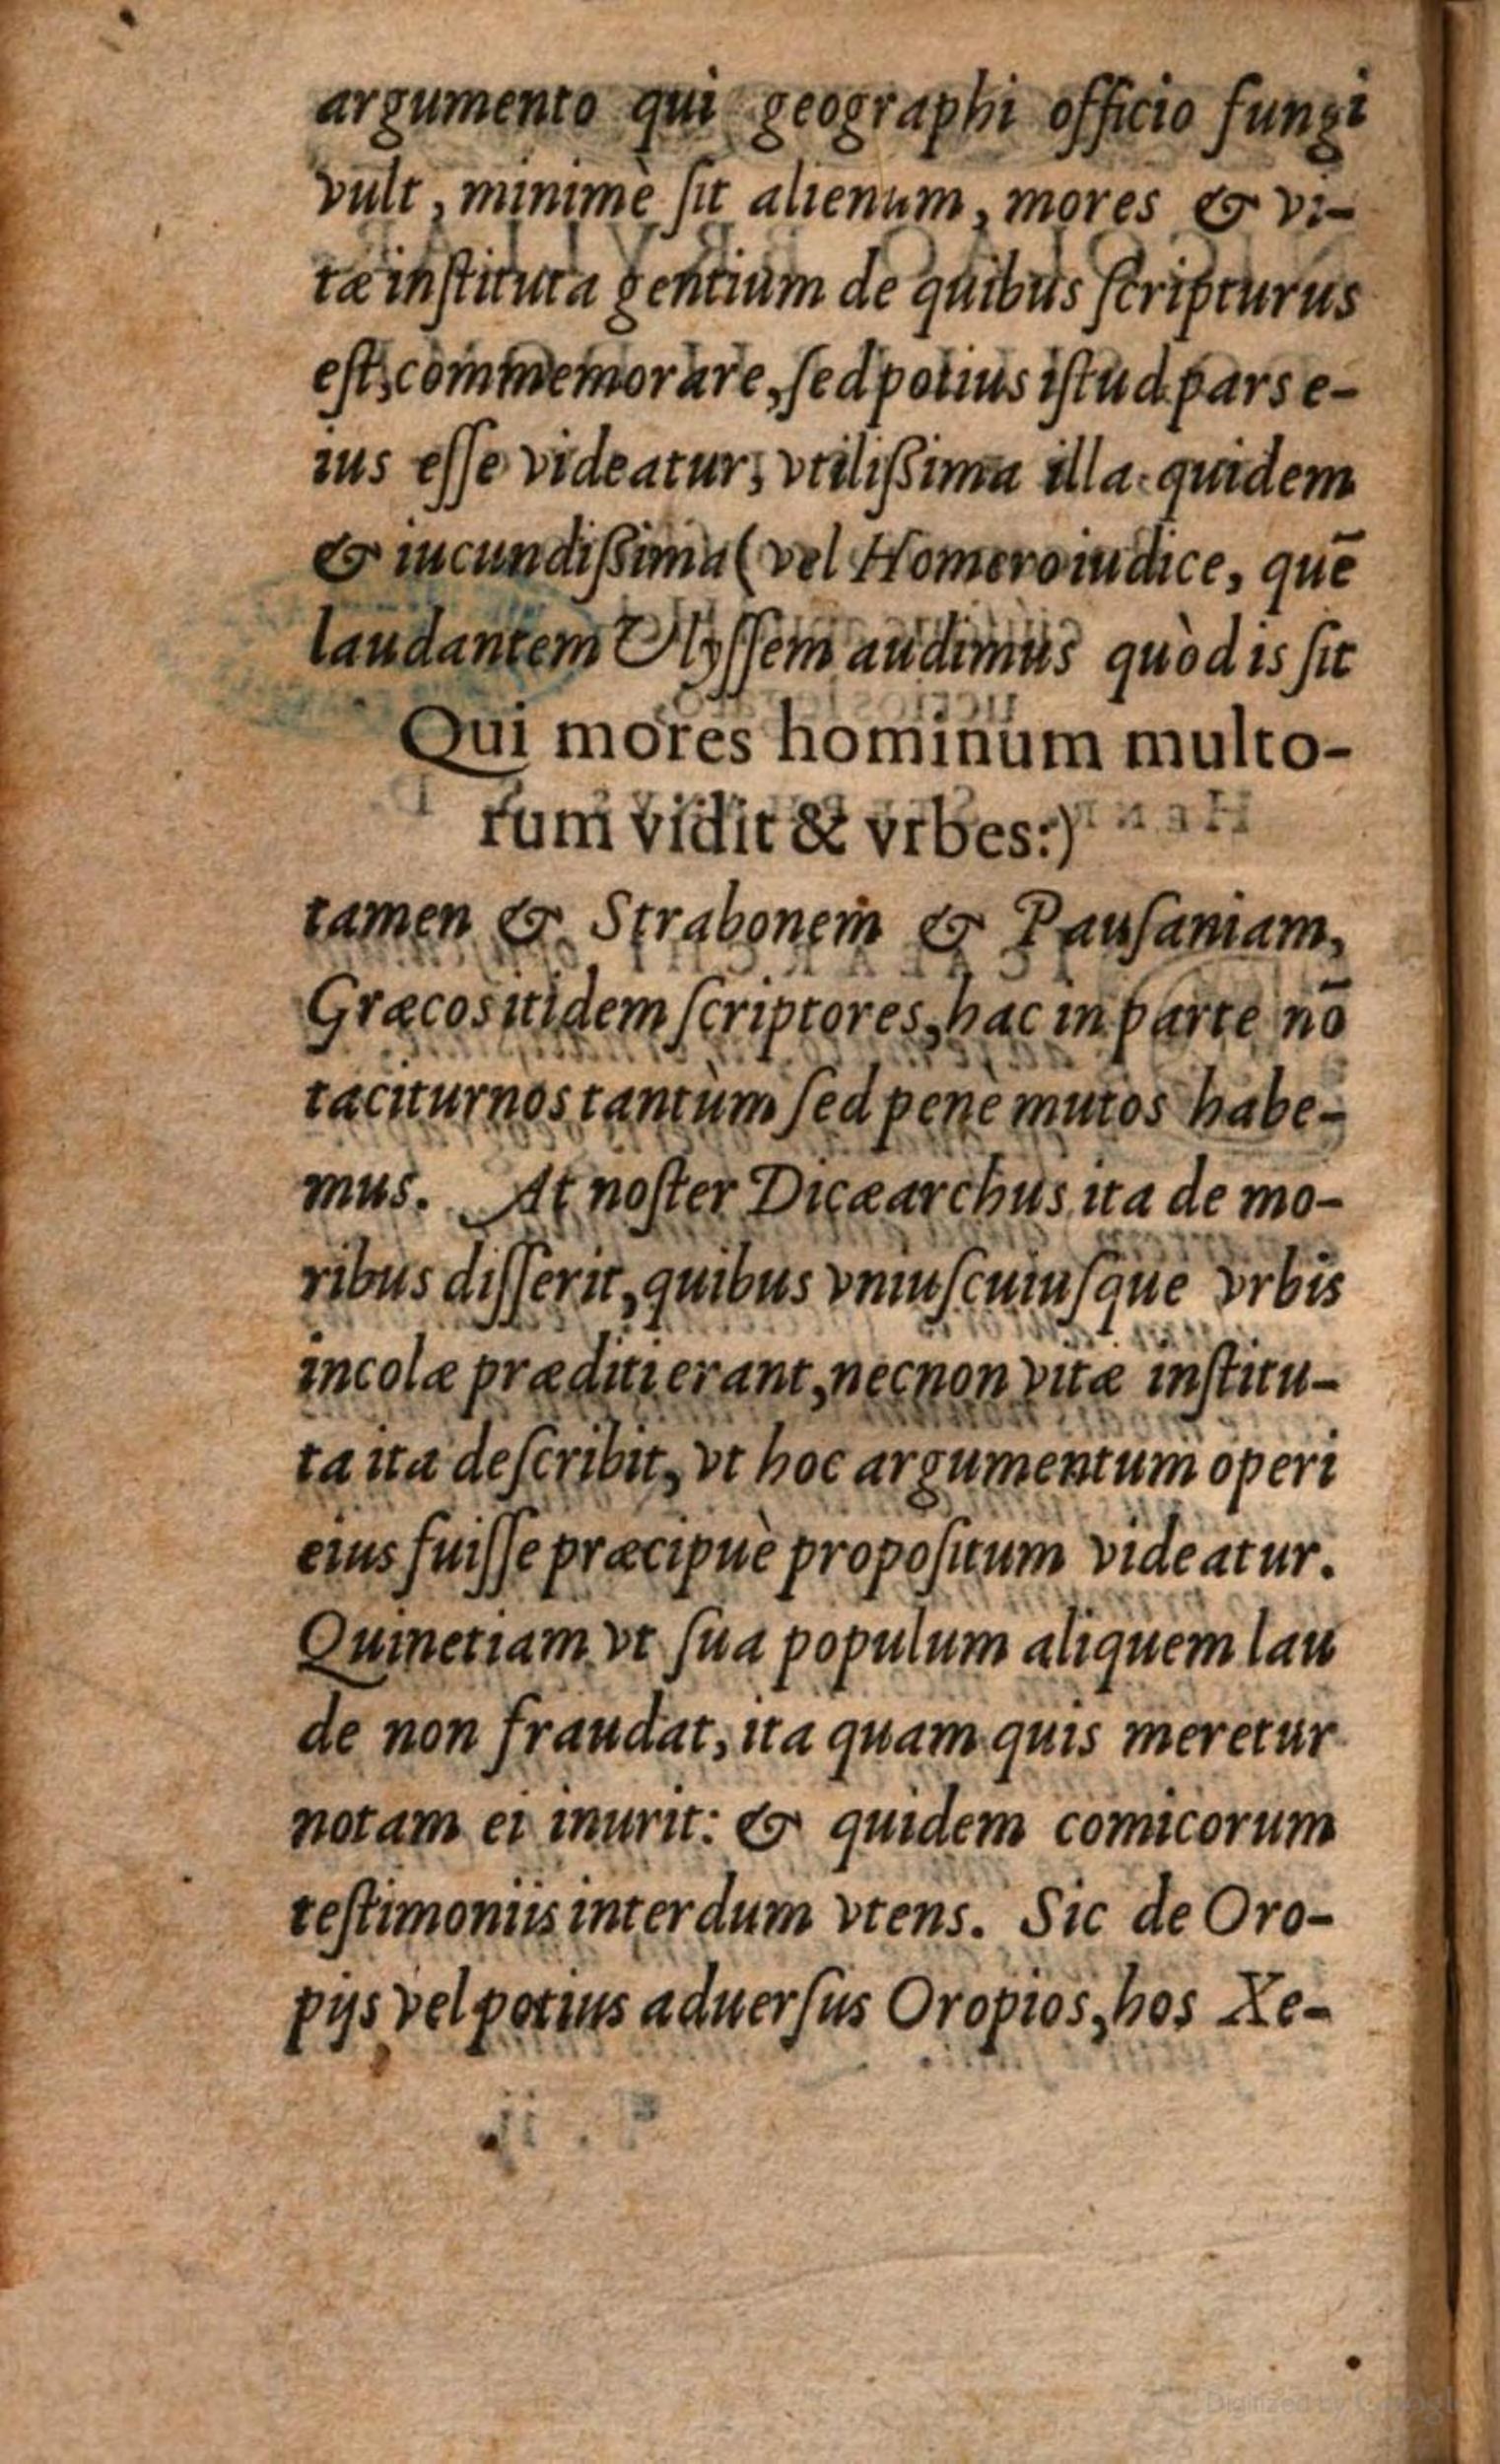 argumento qui geographi officio fungi
vult, minimè ſit alienum, mores & vi-
tæ inſtituta gentium de quibus ſcripturus
eſt, commemorare, ſed potius iſtud pars e-
ius eſſe videatur, vtilißima illa quidem
& iucundißima (vel Homero iudice, quē
laudantem Vlyſſem audimus quòd is ſit
Qui mores hominum multo-
rum vidit & vrbes:)
tamen & Strabonem & Pauſaniam,
Græcos itidem ſcriptores, hac in parte nō
taciturnos tantùm ſed penè mutos habe-
mus. At noſter Dicæarchus ita de mo-
ribus diſſerit, quibus vniuſcuiuſque vrbis
incolæ præditi erant, necnon vitæ inſtitu-
ta ita deſcribit, vt hoc argumentum operi
eius fuiſſe præcipuè propoſitum videatur.
Quinetiam vt ſua populum aliquem lau
de non fraudat, ita quam quis meretur
notam ei inurit: & quidem comicorum
teſtimoniis interdum vtens. Sic de Oro-
pijs vel potius aduerſus Oropios, hos Xe-
Digitized by Google